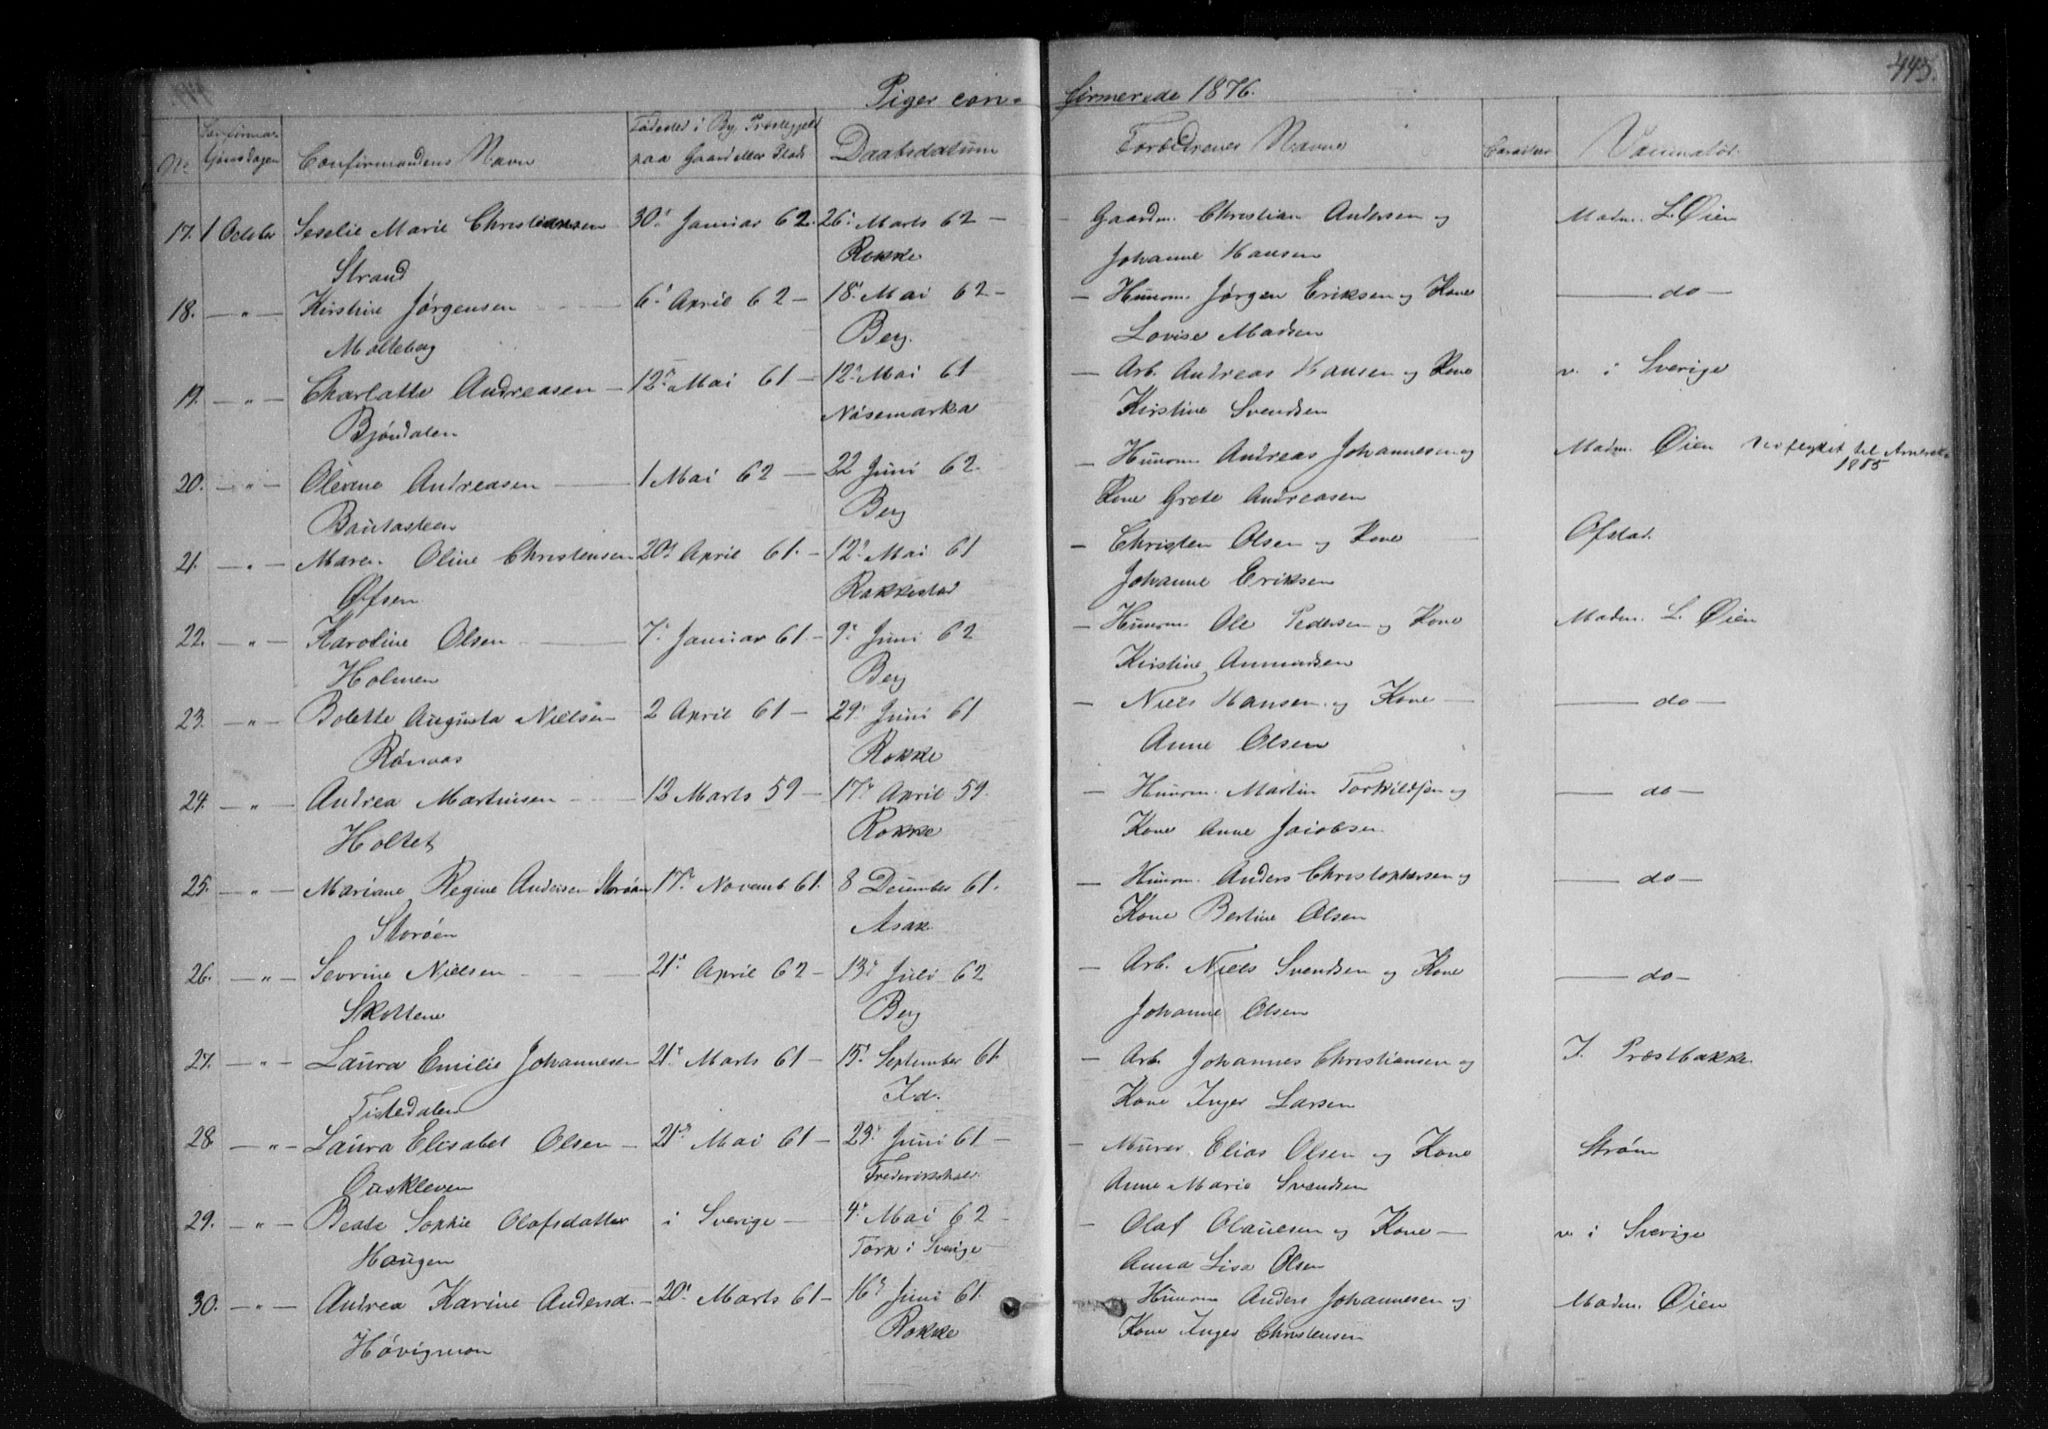 443.
Piger con- firmerede 1876.
No Confirmationsdagen Confirmandens Navn Fødested i By, Præstegjeld paa Gaard eller Plads Daabsdatum Forældrenes Navne Caracter Vaccinatør
17. 1 October Seselie Marie Christiansen 30' Januar 62. 26' Marts 62 — Gaardm. Christian Andersen og Madm. L. Øien
Strand Rokke Johanne Hansen
18. — " — Kirstine Jørgensen 6' April 62 — 18' Mai 62 — Huusm. Jørgen Eriksen og Kone — do —
Molteberg Berg. Lovise Madsen
19. — " — Charlotte Andreasen — 12' Mai 61 — 12' Mai 61 — Arb. Andreas Hansen og Kone v. i Sverige
Bjøndalen Nösemarka Kirstine Svendsen
20. — " — Olevine Andreasen — 1 Mai 62 — 22 Juni 62. — Huusm. Andreas Johannesen og Madm. Øien
1885
Bautasteen Berg Kone Grete Andreasen
21. — " — Maren Oline Christensen 20' April 61. — 12' Mai 61 — Christen Olsen og Kone — Ofstad.
Øfsen Rakkestad Johanne Eriksen
22. — " — Karoline Olsen — 7' Januar 61 — 9' Juni 62 — Huusm. Ole Pedersen og Kone Madm. L. Øien
Holmen Berg Kirstine Anmundsen
23. — " — Bolette Augusta Nielsen 2 April 61 — 29' Juni 61 — Niels Hansen og Kone — — do —
Rønaas Rokke Anne Olsen
24. — " — Andrea Martinsen — 13 Marts 59 — 17' April 59. — Huusm. Martin Torkildsen og — do —
Holtet Rokke Kone Anne Jacobsen
25. — " — Mariane Regine Andersen Storøen 17' Novemb 61. 8 December 61. — Huusm. Anders Christophersen og — do —
Storøen Asak Kone Bertine Olsen
26. — " — Sevrine Nielsen — 21' April 62 — 13' Juli 62 — Arb. Niels Svendsen og Kone — do —
Skottene Berg Johanne Olsen
27. — " — Laura Emilie Johannesen 21' Marts 61 — 15' September 61. — Arb. Johannes Christiansen og I. Præstbakke
Tistedalen Id. Kone Inger Larsen
28. — " — Laura Elisabet Olsen — 21' Mai 61 — 23' Juni 61 — Murer Elias Olsen og Kone Strøm
Oaskleven Frederikshald Anne Marie Svendsen
29. — " — Beate Sophie Olafsdatter i Sverige — 4' Mai 62 — Olaf Olauesen og Kone — v. i Sverige
Haugen Torp i Sverige Anna Lisa Olsen
30. — " — Andrea Karine Andersd. — 20' Marts 61 — 16' Juni 61. — Huusm Anders Johannesen og Madm. Øien
Høvigmon Rokke Kone Inger Christensen